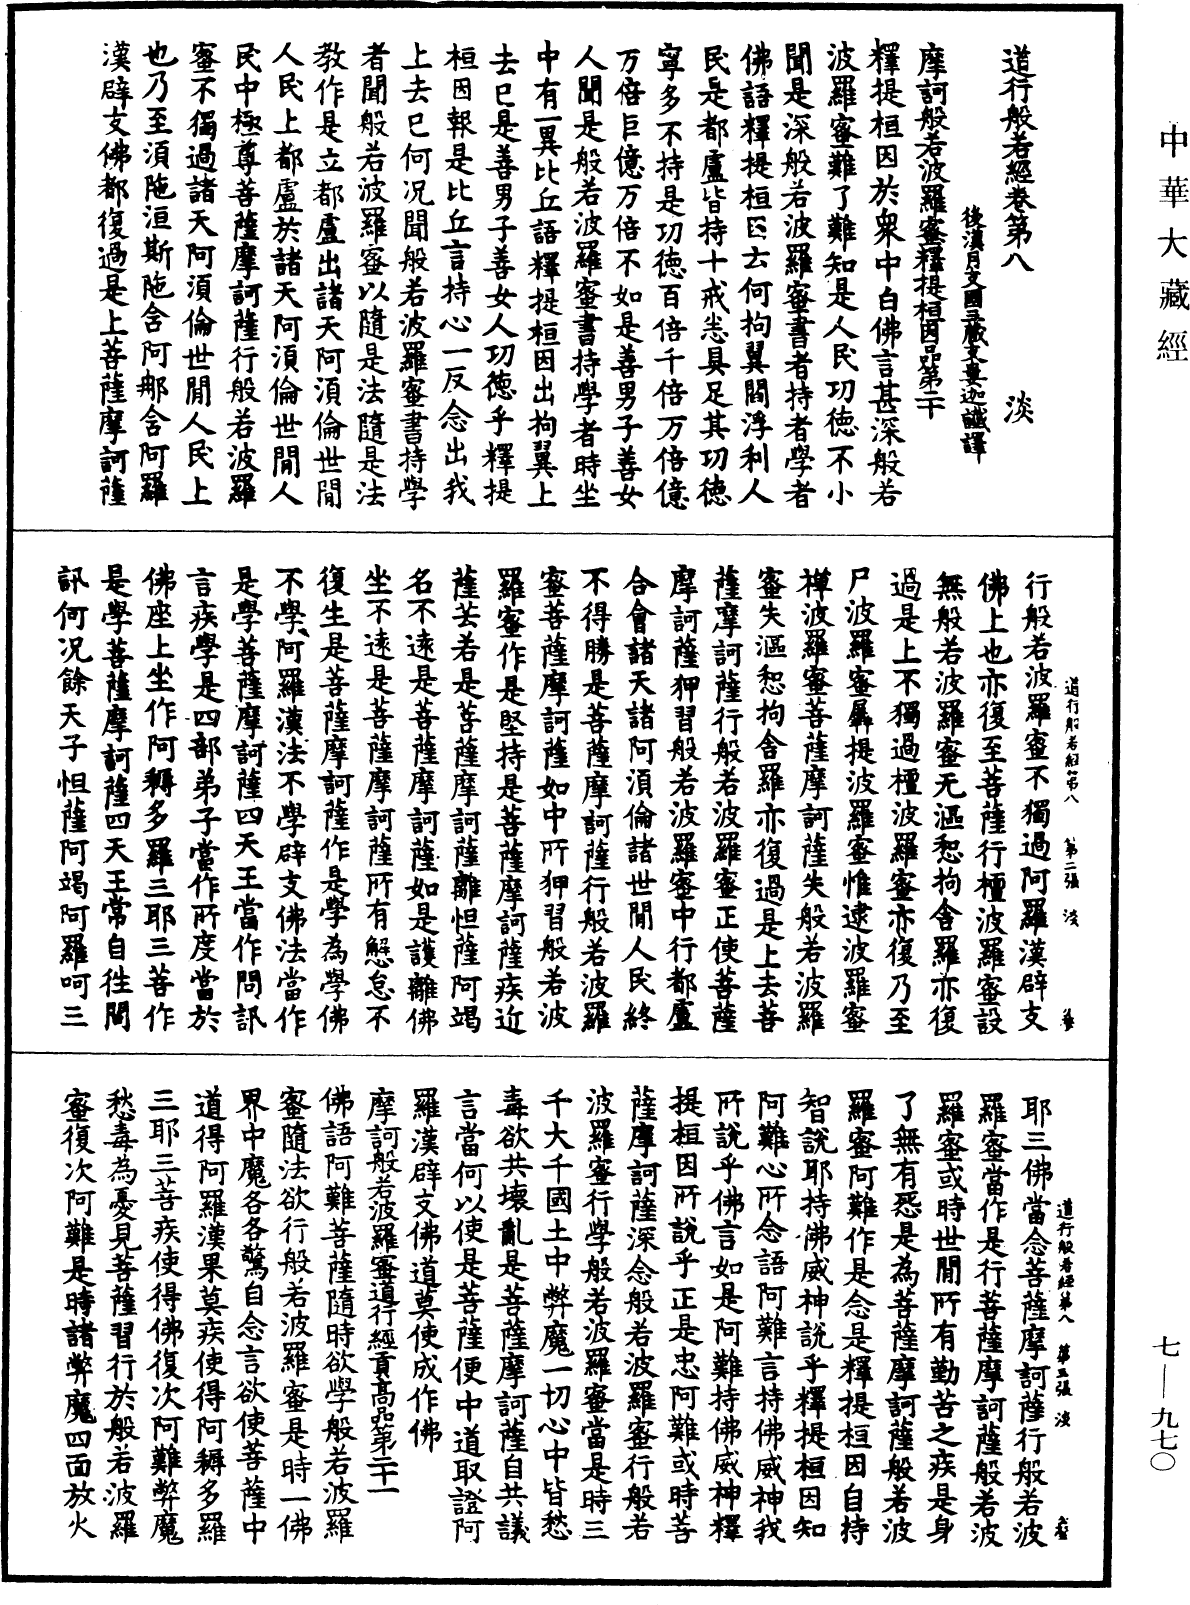 中華大藏經
道行般若經卷第八　淡
後漢月支國三藏支婁迦讖譯
摩訶般若波羅蜜釋提桓因品第二十
釋提桓因於衆中白佛言甚深般若
波羅蜜難了難知是人民功德不小
聞是深般若波羅蜜書者持者學者
佛語釋提桓因云何拘翼閻浮利人
民是都盧皆持十戒悉具足其功德
寧多不持是功德百倍千倍万倍億
万倍巨億万倍不如是善男子善女
人聞是般若波羅蜜書持學者時坐
中有一異比丘語釋提桓因出拘翼上
去已是善男子善女人功德乎釋提
桓因報是比丘言持心一反念出我
上去已何况聞般若波羅蜜書持學
者聞般若波羅蜜以隨是法隨是法
教作是立都盧出諸天阿須倫世閒
人民上都盧於諸天阿須倫世閒人
民中極尊菩薩摩訶薩行般若波羅
蜜不獨過諸天阿須倫世閒人民上
也乃至須陁洹斯陁含阿那含阿羅
漢辟支佛都復過是上菩薩摩訶薩
道行般若經第八　第二張　淡
行般若波羅蜜不獨過阿羅漢辟支
佛上也亦復至菩薩行檀波羅蜜設
無般若波羅蜜无漚惒拘舍羅亦復
過是上不獨過檀波羅蜜亦復乃至
尸波羅蜜羼提波羅蜜惟逮波羅蜜
禪波羅蜜菩薩摩訶薩失般若波羅
蜜失漚惒拘舍羅亦復過是上去菩
薩摩訶薩行般若波羅蜜正使菩薩
摩訶薩狎習般若波羅蜜中行都盧
合會諸天諸阿須倫諸世閒人民終
不得勝是菩薩摩訶薩行般若波羅
蜜菩薩摩訶薩如中所狎習般若波
羅蜜作是堅持是菩薩摩訶薩疾近
薩芸若是菩薩摩訶薩離怛薩阿竭
名不遠是菩薩摩訶薩如是護離佛
坐不遠是菩薩摩訶薩所有懈怠不
復生是菩薩摩訶薩作是學為學佛
不學阿羅漢法不學辟支佛法當作
是學菩薩摩訶薩四天王當作問訊
言疾學是四部弟子當作所度當於
佛座上坐作阿耨多羅三耶三菩作
是學菩薩摩訶薩四天王常自往問
訊何况餘天子怛薩阿竭阿羅呵三
道行般若經第八　第三張　淡
耶三佛當念菩薩摩訶薩行般若波
羅蜜當作是行菩薩摩訶薩般若波
羅蜜或時世閒所有勤苦之疾是身
了無有悉是為菩薩摩訶薩般若波
羅蜜阿難作是念是釋提桓因自持
智說耶持佛威神說乎釋提桓因知
阿難心所念語阿難言持佛威神我
所說乎佛言如是阿難持佛威神釋
提桓因所說乎正是忠阿難或時菩
薩摩訶薩深念般若波羅蜜行般若
波羅蜜行學般若波羅蜜當是時三
千大千國土中弊魔一切心中皆愁
毒欲共壞亂是菩薩摩訶薩自共議
言當何以使是菩薩便中道取證阿
羅漢辟支佛道莫使成作佛
摩訶般若波羅蜜道行經貢高品第二十一
佛語阿難菩薩隨時欲學般若波羅
蜜隨法欲行般若波羅蜜是時一佛
界中魔各各驚自念言欲使菩薩中
道得阿羅漢果莫疾使得阿耨多羅
三耶三菩疾使得佛復次阿難弊魔
愁毒為憂見菩薩習行於般若波羅
蜜復次阿難是時諸弊魔四面放火
七—九七〇